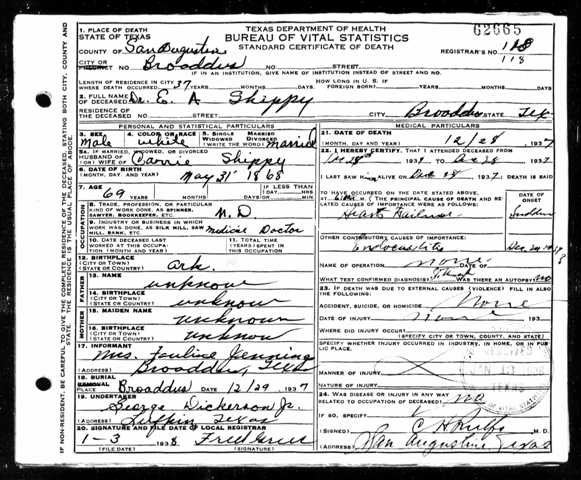 62665
1. PLACE OF DEATH
STATE OF TEXAS
TEXAS DEPARTMENT OF HEALTH
BUREAU OF VITAL STATISTICS
STANDARD CERTIFICATE OF DEATH
COUNTY OF San Augustine
REGISTRAR'S NO. 118
CITY OR PRECINCT NO. Broaddus NO. STREET 118
IF IN AN INSTITUTION, GIVE NAME OF INSTITUTION INSTEAD OF STREET AND NO.
LENGTH OF RESIDENCE IN CITY WHERE DEATH OCCURRED 37 YEARS MONTHS DAYS
HOW LONG IN U. S. IF FOREIGN BORN? YEARS MONTHS DAYS
2. FULL NAME OF DECEASED Dr. E. A Shippy
RESIDENCE OF THE DECEASED NO. STREET CITY Broaddus STATE Tex
PERSONAL AND STATISTICAL PARTICULARS
3. SEX Male
4. COLOR OR RACE White
5. SINGLE MARRIED WIDOWED DIVORCED (WRITE THE WORD) Married
5A. IF MARRIED, WIDOWED, OR DIVORCED HUSBAND OF (OR) WIFE OF Carrie Shippy
6. DATE OF BIRTH (MONTH, DAY, AND YEAR) May 31 1868
7. AGE 69 YEARS MONTHS DAYS IF LESS THAN 1 DAY HRS. MIN.
OCCUPATION
8. TRADE, PROFESSION, OR PARTICULAR KIND OF WORK DONE, AS SPINNER, SAWYER, BOOKKEEPER, ETC. M. D.
9. INDUSTRY OR BUSINESS IN WHICH WORK WAS DONE, AS SILK MILL, SAW MILL, BANK, ETC. Medical Doctor
10. DATE DECEASED LAST WORKED AT THIS OCCUPATION (MONTH AND YEAR)
11. TOTAL TIME (YEARS) SPENT IN THIS OCCUPATION
12. BIRTHPLACE (CITY OR TOWN) (STATE OR COUNTRY) Ark.
FATHER
13. NAME unknown
14. BIRTHPLACE (CITY OR TOWN) (STATE OR COUNTRY) unknown
MOTHER
15. MAIDEN NAME unknown
16. BIRTHPLACE (CITY OR TOWN) (STATE OR COUNTRY) unknown
17. INFORMANT Mrs. Pauline Jennings
(ADDRESS) Broaddus, Texas
18. BURIAL REMOVAL
PLACE Broaddus DATE 12/29 1937
19. UNDERTAKER George Dickerson Jr.
(ADDRESS) Lufkin Texas
20. SIGNATURE AND FILE DATE OF LOCAL REGISTRAR
1-3 1938
MEDICAL PARTICULARS
21. DATE OF DEATH (MONTH, DAY AND YEAR) 12/28 1937
22. I HEREBY CERTIFY, THAT I ATTENDED DECEASED FROM
1937 TO Dec 28 1937
I LAST SAW H ALIVE ON Dec 28 1937
TO HAVE OCCURRED ON THE DATE STATED ABOVE, AT
THE PRINCIPAL CAUSE OF DEATH AND RELATED CAUSES OF IMPORTANCE WERE AS FOLLOWS:
DATE OF ONSET
Heart Failure
OTHER CONTRIBUTORY CAUSES OF IMPORTANCE:
NAME OF OPERATION none DATE OF
WHAT TEST CONFIRMED DIAGNOSIS? WAS THERE AN AUTOPSY? no
23. IF DEATH WAS DUE TO EXTERNAL CAUSES (VIOLENCE) FILL IN ALSO THE FOLLOWING:
ACCIDENT, SUICIDE, OR HOMICIDE? None
DATE OF INJURY None 193
WHERE DID INJURY OCCUR?
(SPECIFY CITY OR TOWN, COUNTY, AND STATE)
SPECIFY WHETHER INJURY OCCURRED IN INDUSTRY, IN HOME, OR IN PUBLIC
MANNER OF INJURY
NATURE OF INJURY
24. WAS DISEASE OR INJURY IN ANY WAY RELATED TO OCCUPATION OF DECEASED? no
IF SO, SPECIFY
(SIGNED) M. D.
(ADDRESS) San Augustine, Texas